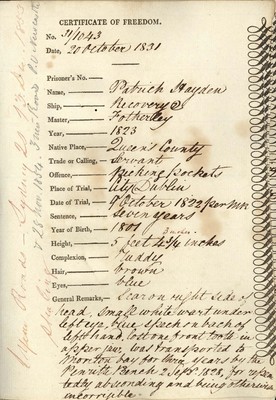 CERTIFICATE OF FREEDOM.
No. 31/1043
Date, 20 October 1831
Prisoner's No.
Name, Patrick Hayden
Ship, Recovery
Master, Fotherley
Year, 1823
Native Place, Queens County
Trade or Calling, Servant
Offence, Picking pockets
Place of Trial, City Dublin
Date of Trial, 9 October 1822
Sentence, Seven years
Year of Birth, 1801
Height, 5 feet 4¾ inches
Complexion, ruddy
Hair, brown
Eyes, blue
General Remarks, Scar on right side of
head. Small white wart under
left eye, blue speck on back of
left hand, lost one front tooth in
upper jaw. was transported to
Moreton bay for three years by the
Penrith Bench 2 Sept 1828, for repea
tedly absconding and being otherwise
incorrigible.